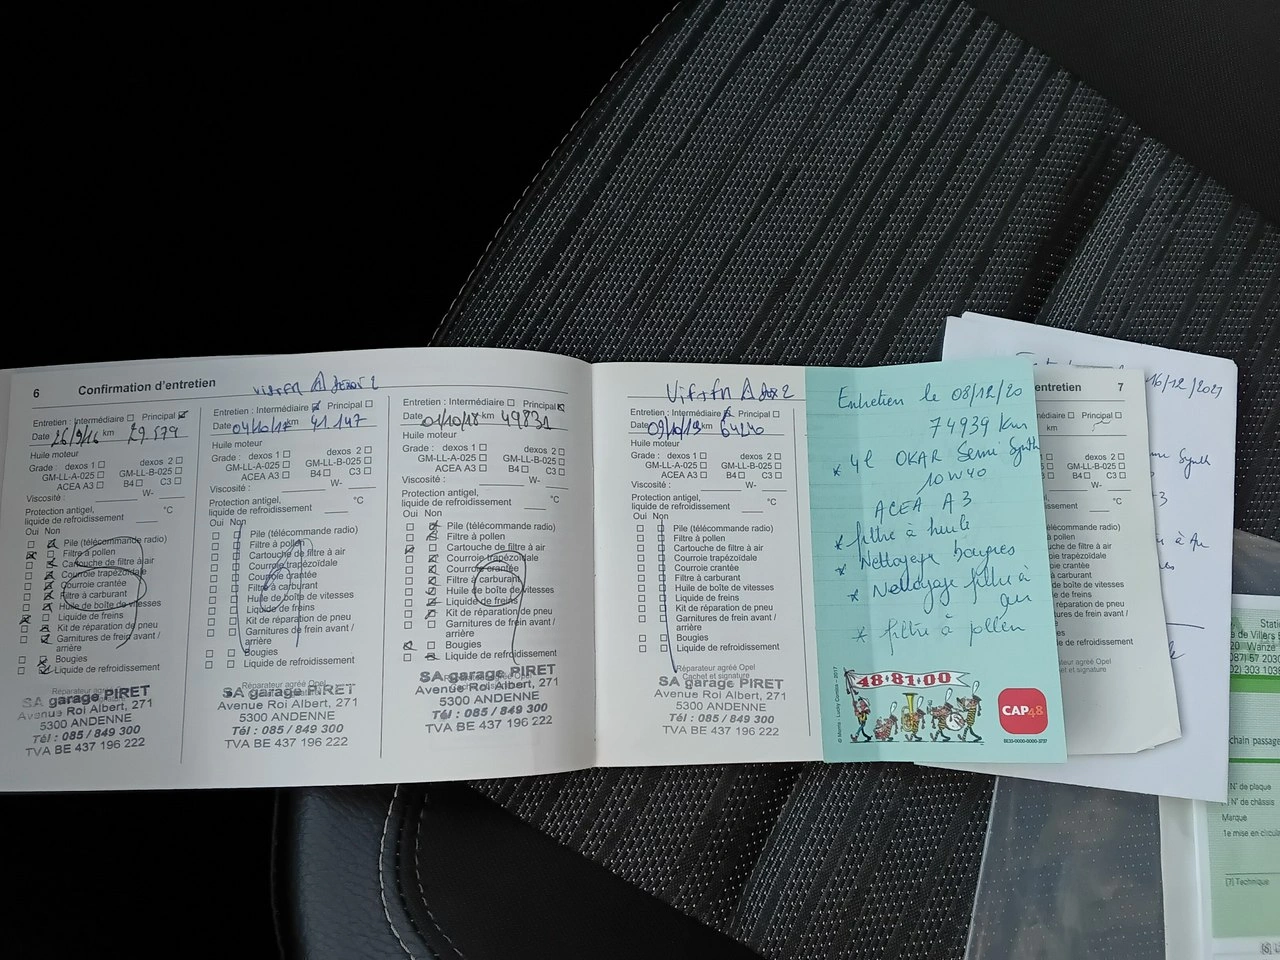 6 Confirmation d'entretien
Entretien : Intermédiaire Principal
Date 26/9/16 km 29 579
Huile moteur
Grade : dexos 1 dexos 2
GM-LL-A-025 GM-LL-B-025
ACEA A3 B4 C3
Viscosité : W-
Protection antigel,
liquide de refroidissement °C
Oui Non
Pile (télécommande radio)
Filtre à pollen
Cartouche de filtre à air
Courroie trapézoïdale
Courroie crantée
Filtre à carburant
Huile de boîte de vitesses
Liquide de freins
Kit de réparation de pneu
Garnitures de frein avant /
arrière
Bougies
Liquide de refroidissement
Réparateur agréé Opel
SA garage PIRET
Avenue Roi Albert, 271
5300 ANDENNE
Tél : 085 / 849 300
TVA BE 437 196 222
Entretien : Intermédiaire Principal
Date 04/10/17 km 41 147
Huile moteur
Grade : dexos 1 dexos 2
GM-LL-A-025 GM-LL-B-025
ACEA A3 B4 C3
Viscosité : W-
Protection antigel,
liquide de refroidissement °C
Oui Non
Pile (télécommande radio)
Filtre à pollen
Cartouche de filtre à air
Courroie trapézoïdale
Courroie crantée
Filtre à carburant
Huile de boîte de vitesses
Liquide de freins
Kit de réparation de pneu
Garnitures de frein avant /
arrière
Bougies
Liquide de refroidissement
SA garage PIRET
Avenue Roi Albert, 271
5300 ANDENNE
Tél : 085 / 849 300
TVA BE 437 196 222
Entretien : Intermédiaire Principal
Date 01/10/18 km 49831
Huile moteur
Grade : dexos 1 dexos 2
GM-LL-A-025 GM-LL-B-025
ACEA A3 B4 C3
Viscosité : W-
Protection antigel,
liquide de refroidissement °C
Oui Non
Pile (télécommande radio)
Filtre à pollen
Cartouche de filtre à air
Courroie trapézoïdale
Courroie crantée
Filtre à carburant
Huile de boîte de vitesses
Liquide de freins
Kit de réparation de pneu
Garnitures de frein avant /
arrière
Bougies
Liquide de refroidissement
SA garage PIRET
Avenue Roi Albert, 271
5300 ANDENNE
Tél : 085 / 849 300
TVA BE 437 196 222
Entretien : Intermédiaire Principal
Date 09/10/19 km 64240
Huile moteur
Grade : dexos 1 dexos 2
GM-LL-A-025 GM-LL-B-025
ACEA A3 B4 C3
Viscosité : W-
Protection antigel,
liquide de refroidissement °C
Oui Non
Pile (télécommande radio)
Filtre à pollen
Cartouche de filtre à air
Courroie trapézoïdale
Courroie crantée
Filtre à carburant
Huile de boîte de vitesses
Liquide de freins
Kit de réparation de pneu
Garnitures de frein avant /
arrière
Bougies
Liquide de refroidissement
Réparateur agréé Opel
Cachet et signature
SA garage PIRET
Avenue Roi Albert, 271
5300 ANDENNE
Tél : 085 / 849 300
TVA BE 437 196 222
Entretien le 08/12/20
74939 km
* 4l OKAR Semi Synth
10W40
ACEA A3
* filtre à huile
* Nettoyage bougies
* Nettoyage filtre à
air
* filtre à pollen
48·81·00
CAP48
entretien 7
Principal
km
dexos 2
GM-LL-B-025
B4 C3
W-
°C
refroidissement
Opel
signature
16/12/2021
Synth
N° de plaque
N° de châssis
Marque
[7] Technique